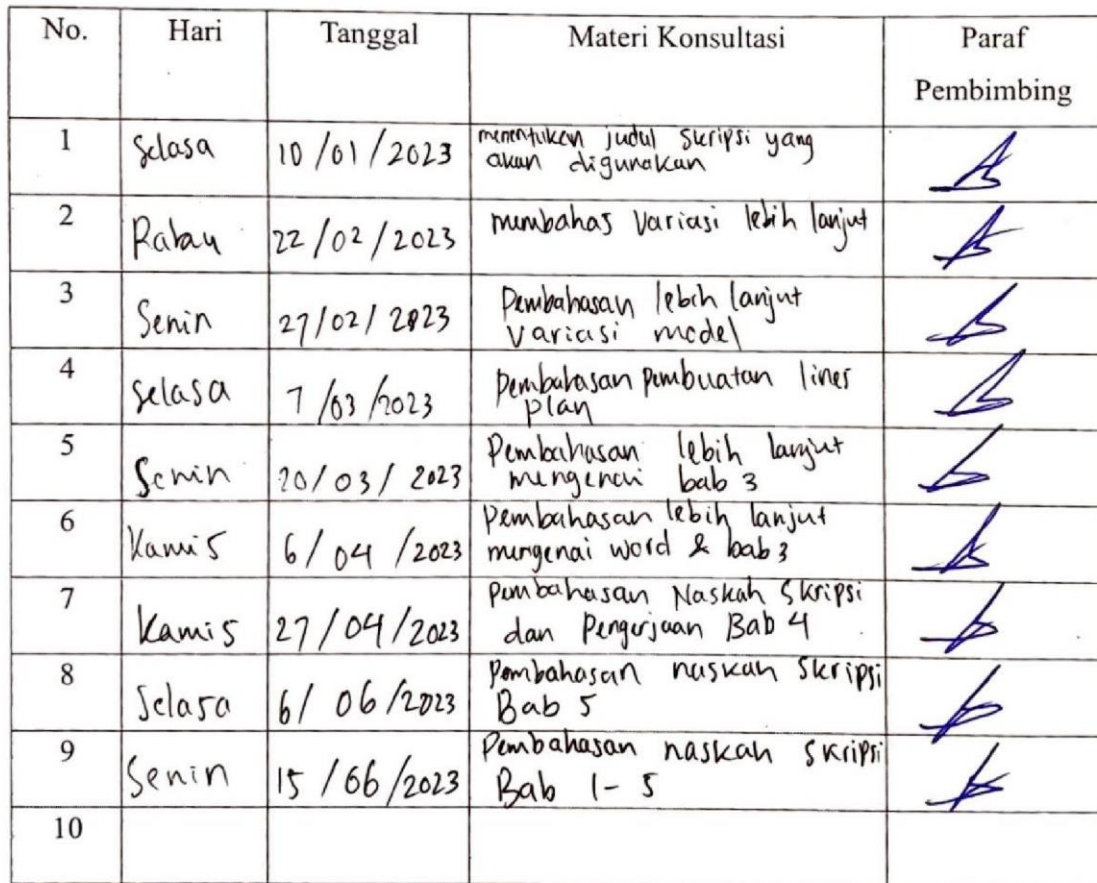 No. Hari Tanggal Materi Konsultasi Paraf
Pembimbing
1 Selasa 10/01/2023 menentukan judul skripsi yang
akan digunakan
2 Rabau 22/02/2023 membahas variasi lebih lanjut
3 Senin 27/02/2023 Pembahasan lebih lanjut
variasi model
4 selasa 7/03/2023 pembahasan pembuatan lines
plan
5 Senin 20/03/2023 Pembahasan lebih lanjut
mengenai bab 3
6 Kamis 6/04/2023 Pembahasan lebih lanjut
mengenai word & bab 3
7 Kamis 27/04/2023 pembahasan Naskah Skripsi
dan Pengerjaan Bab 4
8 Selasa 6/06/2023 Pembahasan naskah Skripsi
Bab 5
9 Senin 15/06/2023 Pembahasan naskah Skripsi
Bab 1-5
10